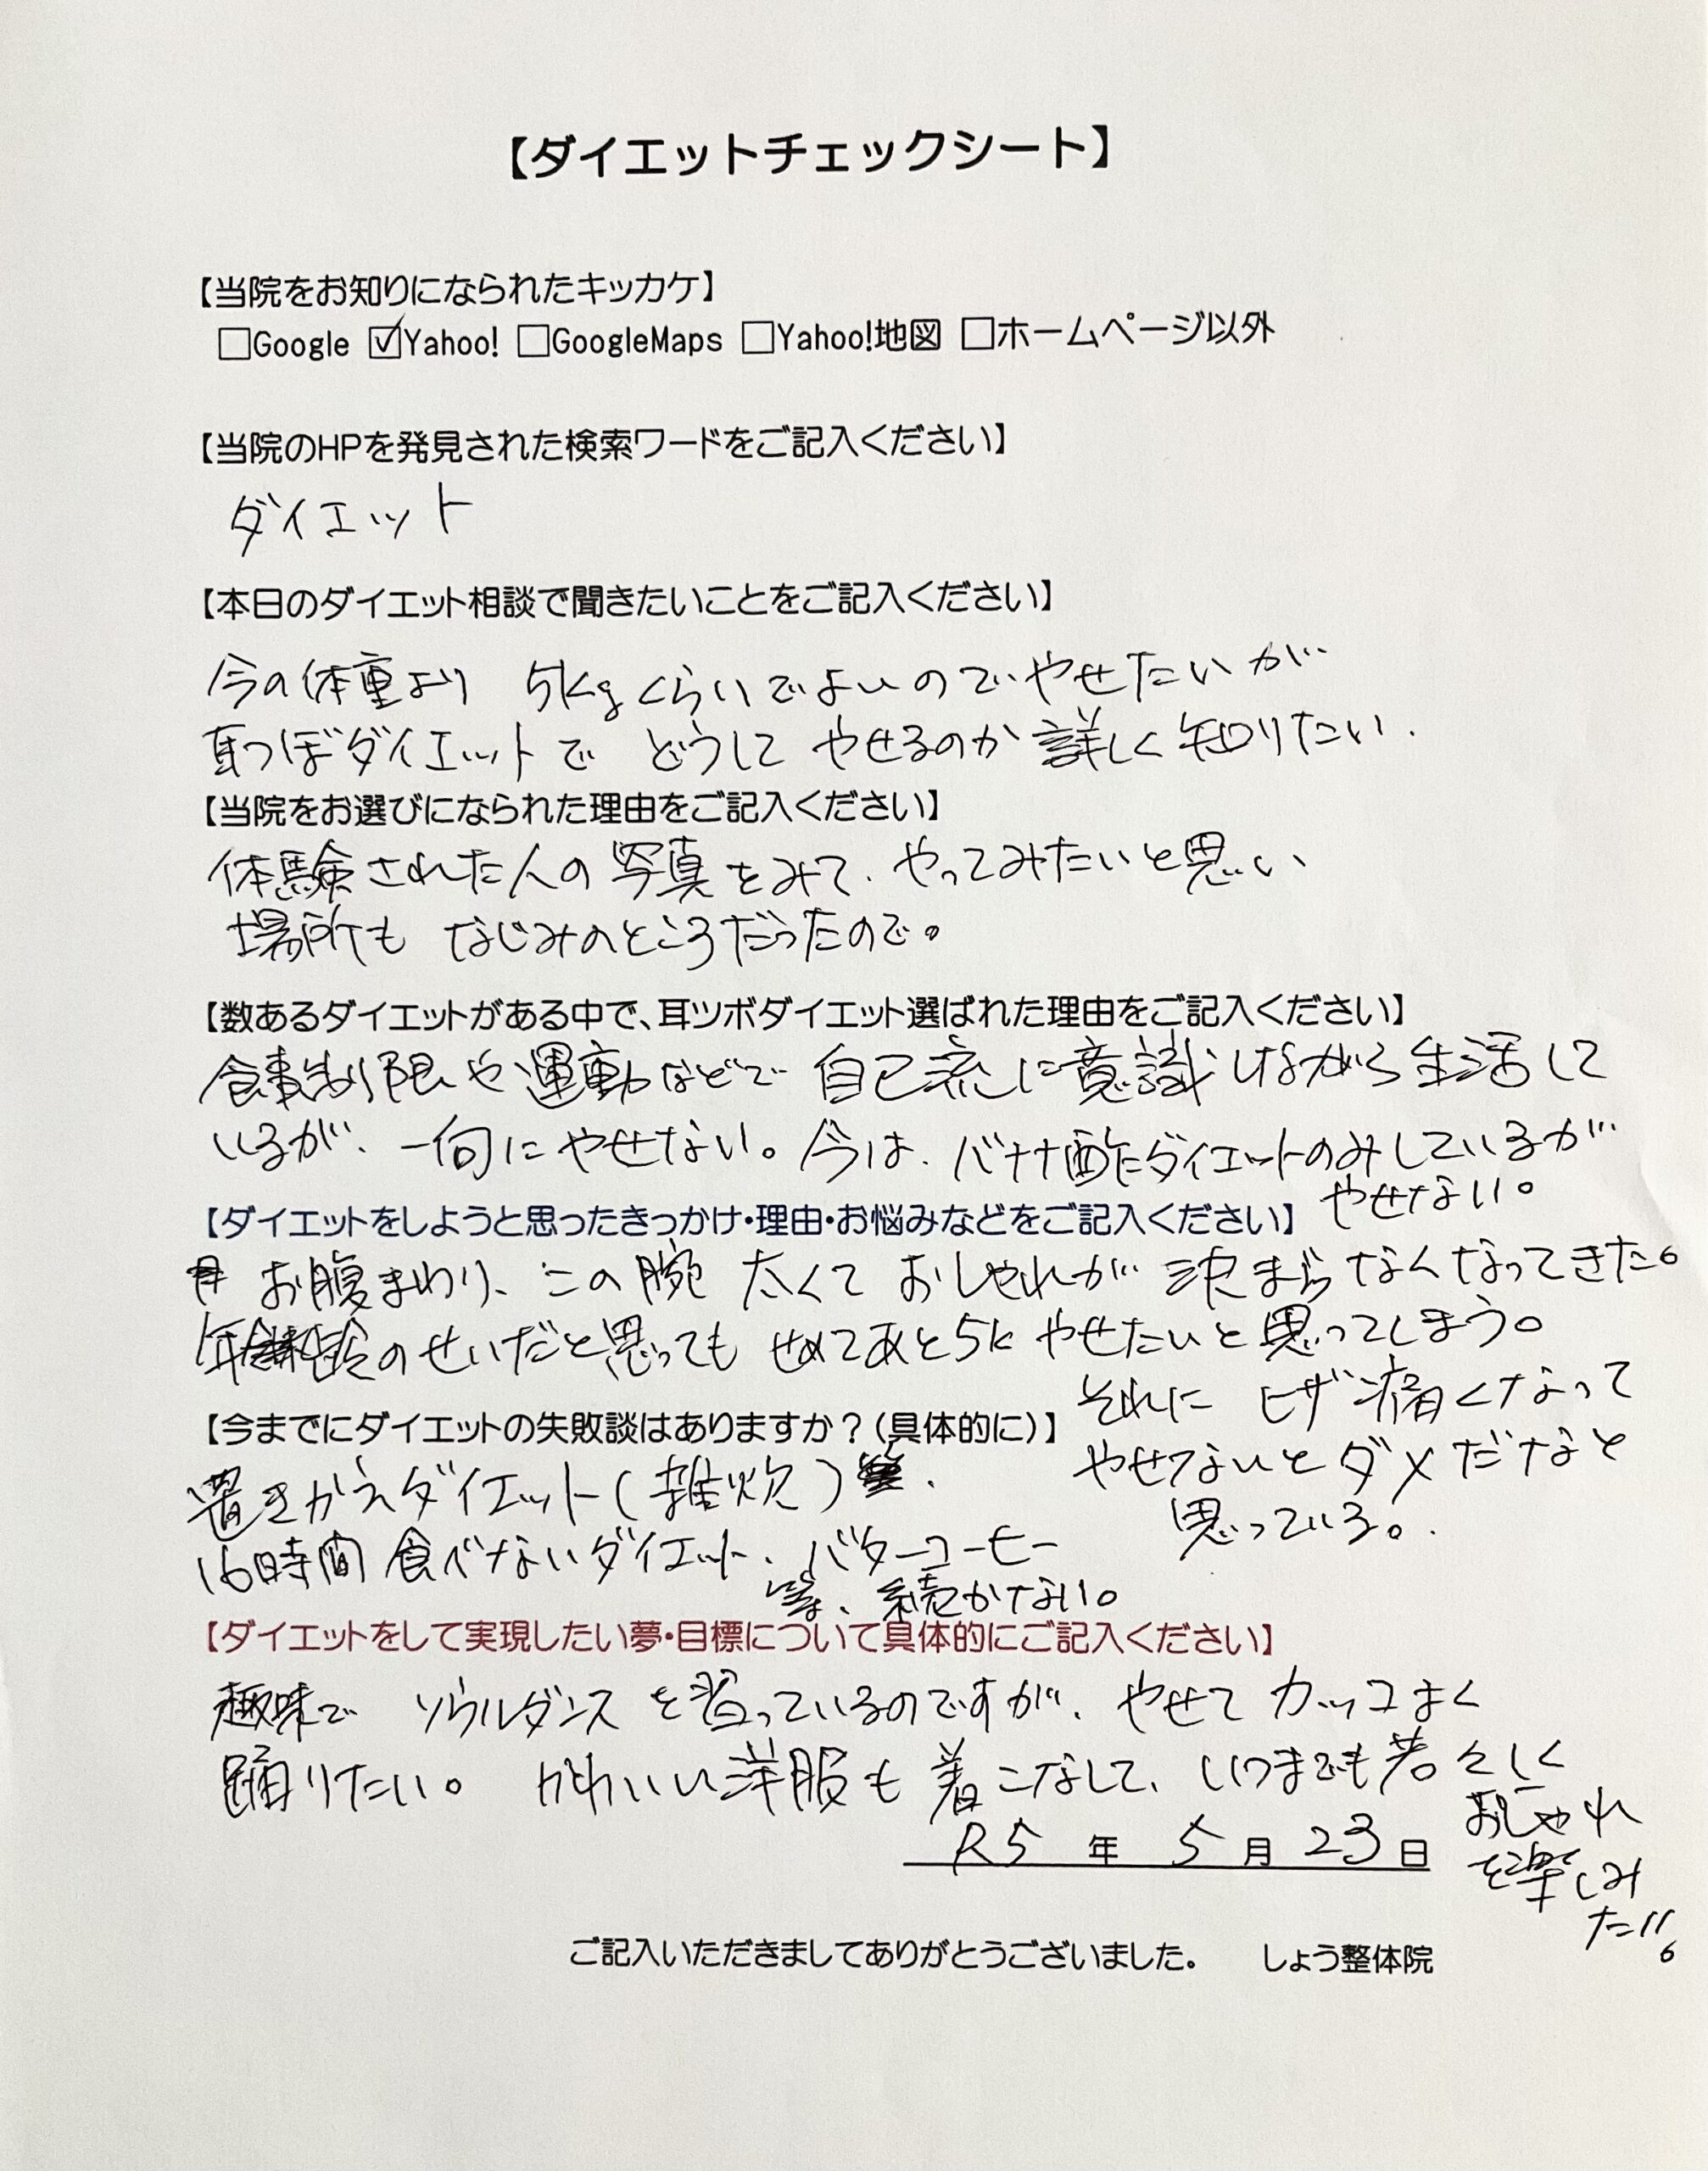 【ダイエットチェックシート】
【当院をお知りになられたキッカケ】
□Google ☑Yahoo! □GoogleMaps □Yahoo!地図 □ホームページ以外
【当院のHPを発見された検索ワードをご記入ください】
ダイエット
【本日のダイエット相談で聞きたいことをご記入ください】
今の体重より 5kgくらいでよいのでやせたいが
耳つぼダイエットで どうして やせるのか 詳しく知りたい.
【当院をお選びになられた理由をご記入ください】
体験された人の写真をみて、やってみたいと思い
場所も なじみのところだったので。
【数あるダイエットがある中で、耳ツボダイエット選ばれた理由をご記入ください】
食事制限や運動などで 自己流に意識しながら生活して
いるが、一向にやせない。今は、バナナ酢ダイエットのみしているが
やせない。
【ダイエットをしようと思ったきっかけ・理由・お悩みなどをご記入ください】
お腹まわり、この腕 太くて おしゃれが 決まらなくなってきた。
年齢のせいだと思っても せめてあと5k やせたいと思ってしまう。
それに ヒザ痛くなって
やせないとダメだなと
思っている。
【今までにダイエットの失敗談はありますか？(具体的に)】
置きかえダイエット(雑炊)、
16時間食べないダイエット、バターコーヒー
等、続かない。
【ダイエットをして実現したい夢・目標について具体的にご記入ください】
趣味で ソウルダンスを習っているのですが、やせて カッコよく
踊りたい。 かわいい洋服も 着こなして、いつまでも若々しく
おしゃれ
を楽しみ
たい。
R5 年 5 月 23 日
ご記入いただきましてありがとうございました。 しょう整体院